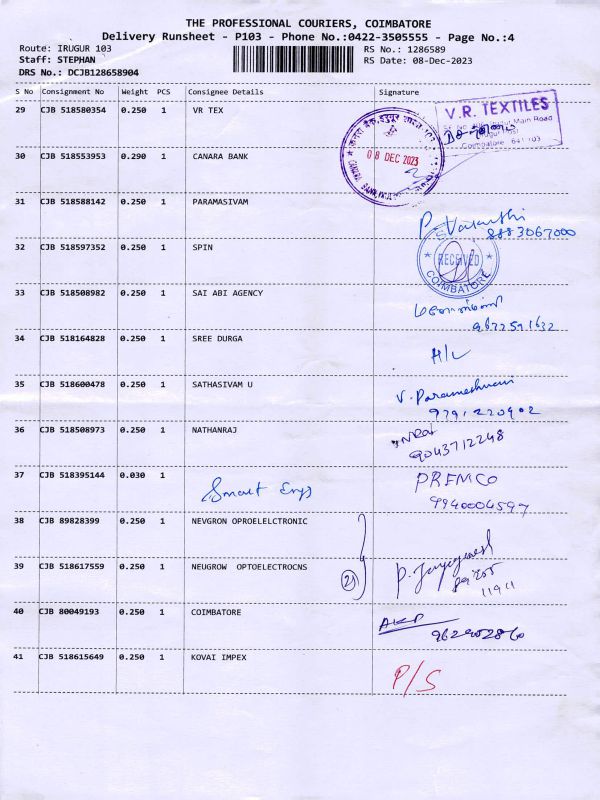 THE PROFESSIONAL COURIERS, COIMBATORE
Delivery Runsheet - P103 - Phone No.:0422-3505555 - Page No.:4
Route: IRUGUR 103 RS No.: 1286589
Staff: STEPHAN RS Date: 08-Dec-2023
DRS No.: DCJB128658904
S No Consignment No Weight PCS Consignee Details Signature
29 CJB 518580354 0.250 1 VR TEX
V.R. TEXTILES
Main Road
Coimbatore 641 103
30 CJB 518553953 0.290 1 CANARA BANK
08 DEC 2023
31 CJB 518588142 0.250 1 PARAMASIVAM
8883067000
32 CJB 518597352 0.250 1 SPIN
RECEIVED
COIMBATORE
33 CJB 518508982 0.250 1 SAI ABI AGENCY
34 CJB 518164828 0.250 1 SREE DURGA H/L
35 CJB 518600478 0.250 1 SATHASIVAM U V. Parameshwari
9791220902
36 CJB 518508973 0.250 1 NATHANRAJ
9043712248
37 CJB 518395144 0.030 1 Smart PREMCO
9940004597
38 CJB 89828399 0.250 1 NEVGRON OPROELECTRONIC
39 CJB 518617559 0.250 1 NEUGROW OPTOELECTROCNS
40 CJB 80049193 0.250 1 COIMBATORE AKP
41 CJB 518615649 0.250 1 KOVAI IMPEX P/S